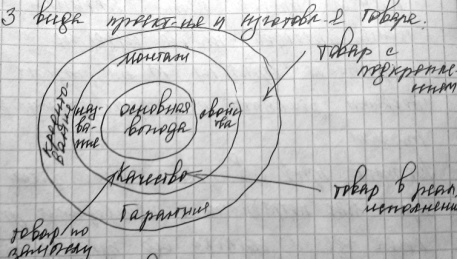 3 вида проект-ия и изготовл-я товара.
монтаж
товар с
подкрепле-
нием
кредито-
вание
наз-
ва-
ние
основная
выгода
свойс-
тва
качество
товар в реал.
исполнении
Гарантия
товар по
замыслу